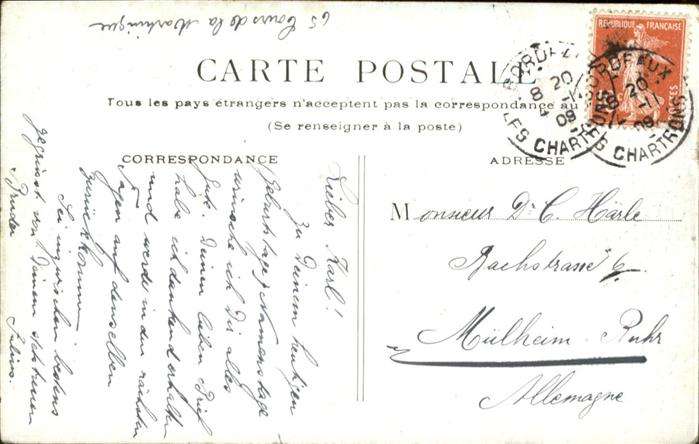 65 Cours de la Martinique
CARTE POSTALE
Tous les pays étrangers n'acceptent pas la correspondance au
(Se renseigner à la poste)
CORRESPONDANCE
ADRESSE
RÉPUBLIQUE FRANÇAISE
BORDEAUX
8 20
09
LES CHARTRONS
BORDEAUX
8 20
09
LES CHARTRONS
Lieber Karl!
Zu Deinem heutigen
Geburtstage, Namenstage
wünsche ich Dir alles
Gute. Deinen lieben Brief
habe ich dankend erhalten
und werde in den nächsten
Tagen auf denselben
zurückkommen.
Sei inzwischen bestens
gegrüsst von Deinem
Bruder Julius.
Monsieur Dr C. Härle
Bachstrasse 6
Mülheim-Ruhr
Allemagne